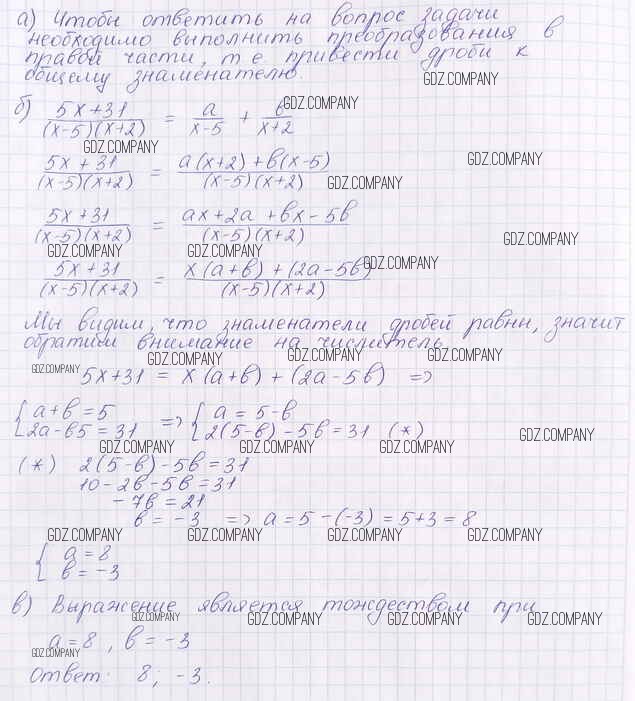 а) Чтобы ответить на вопрос задачи
необходимо выполнить преобразования в
правой части, т е привести дроби к
общему знаменателю.
GDZ.COMPANY
б) (5x+31)/((x-5)(x+2)) = a/(x-5) + в/(x+2)
GDZ.COMPANY
GDZ.COMPANY
(5x+31)/((x-5)(x+2)) = (a(x+2)+в(x-5))/((x-5)(x+2))
GDZ.COMPANY
GDZ.COMPANY
(5x+31)/((x-5)(x+2)) = (ax+2a+вx-5в)/((x-5)(x+2))
GDZ.COMPANY
GDZ.COMPANY GDZ.COMPANY
(5x+31)/((x-5)(x+2)) = (x(a+в)+(2a-5в))/((x-5)(x+2))
GDZ.COMPANY
Мы видим, что знаменатели дробей равны, значит
обратим внимание на числитель
GDZ.COMPANY GDZ.COMPANY GDZ.COMPANY
GDZ.COMPANY
5x+31 = x(a+в)+(2a-5в) =>
{ a+в=5 => { a=5-в
2a-в5=31 2(5-в)-5в=31 (*)
GDZ.COMPANY
GDZ.COMPANY GDZ.COMPANY GDZ.COMPANY
(*) 2(5-в)-5в=31
10-2в-5в=31
-7в=21
в=-3 => a=5-(-3)=5+3=8
GDZ.COMPANY GDZ.COMPANY GDZ.COMPANY GDZ.COMPANY
{ a=8
в=-3
в) Выражение является тождеством при
GDZ.COMPANY GDZ.COMPANY GDZ.COMPANY GDZ.COMPANY
a=8, в=-3
GDZ.COMPANY
Ответ: 8; -3.